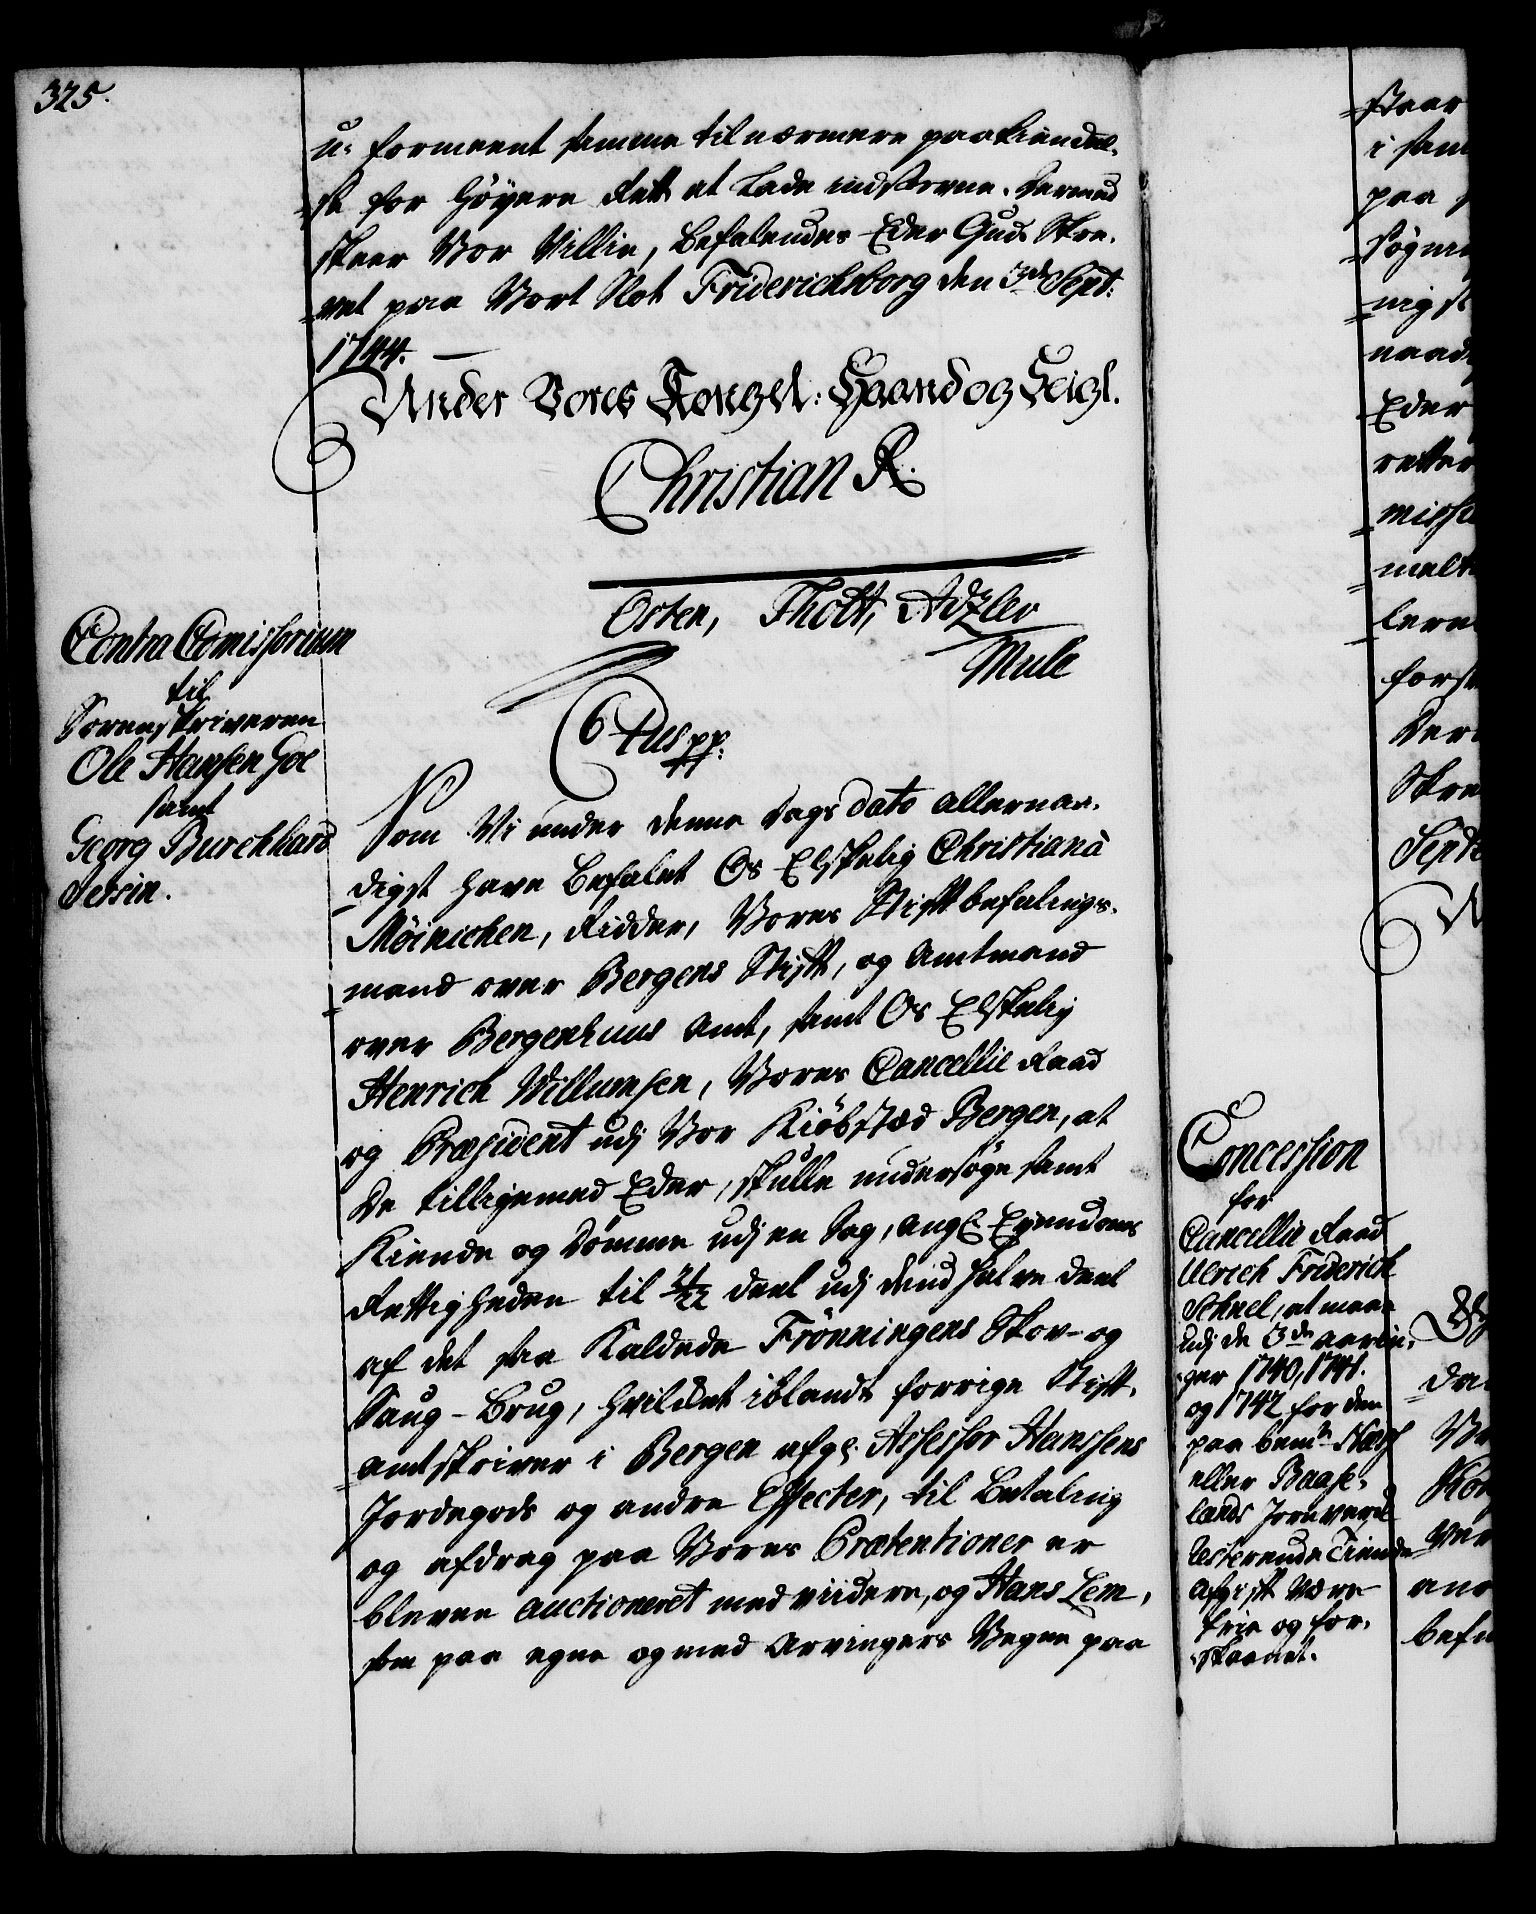 325.
u-formeent samme til nærmere paakiendel-
se for Höyere Rett at Lade indstevne. Dermed
skeer Vor Villie, Befalendes Eder Gud. Skre-
vet paa Vort Slot Friderichsborg den 3de Sept:
1744. —
Under Vores Kongel: Haand og Seigl.
Christian R.
Osten, Thott, Adzlev
Mule
Contra Comissorium
til
Sorenskriveren
Ole Hansen Goe
samt
Georg Burchhard
Jersin.
C6tus pp:
Som Vi under denne Dags dato allernaa-
digst have Befalet Os Elskelig Christian à
Möinichen, Ridder, Vores Stiftbefalings-
mand over Bergens Stift, og Amtmand
over Bergenhuus Amt, samt Os Elskelig
Henrich Willumsen, Vores Cancellie Raad
og Præsident udj Vor Kiöbstæd Bergen, at
De tilligemed Eder, skulle undersöge samt
Kiende og Dömme udj en Sag, angl. Eyendoms
Rettigheden til 21/22 deel udj dend halve deel
af det saa Kaldede Frönningens Skov- og
Saug-Brug, hvilket iblandt forrige Stift-
amtskriver i Bergen afgl. Assessor Hanssens
Jordegods og andre Effecter, til Betaling
og afdrag paa Vores Prætentioner er
bleven auctioneret med viidere, og Hans Lem,
som paa egne og med Arvingers Vegne paa
Concession
for
Cancellie Raad
Ulrich Friderich
Schnel, at maae
udj de 3de aarin-
ger 1740, 1741.
og 1742 for den
paa bemte
eller Baase-
lands Jernverck
resterende Tiende
Afgift være
frie og for-
skaanet.
i sam
paa
Eder
retter
Skre
Septe